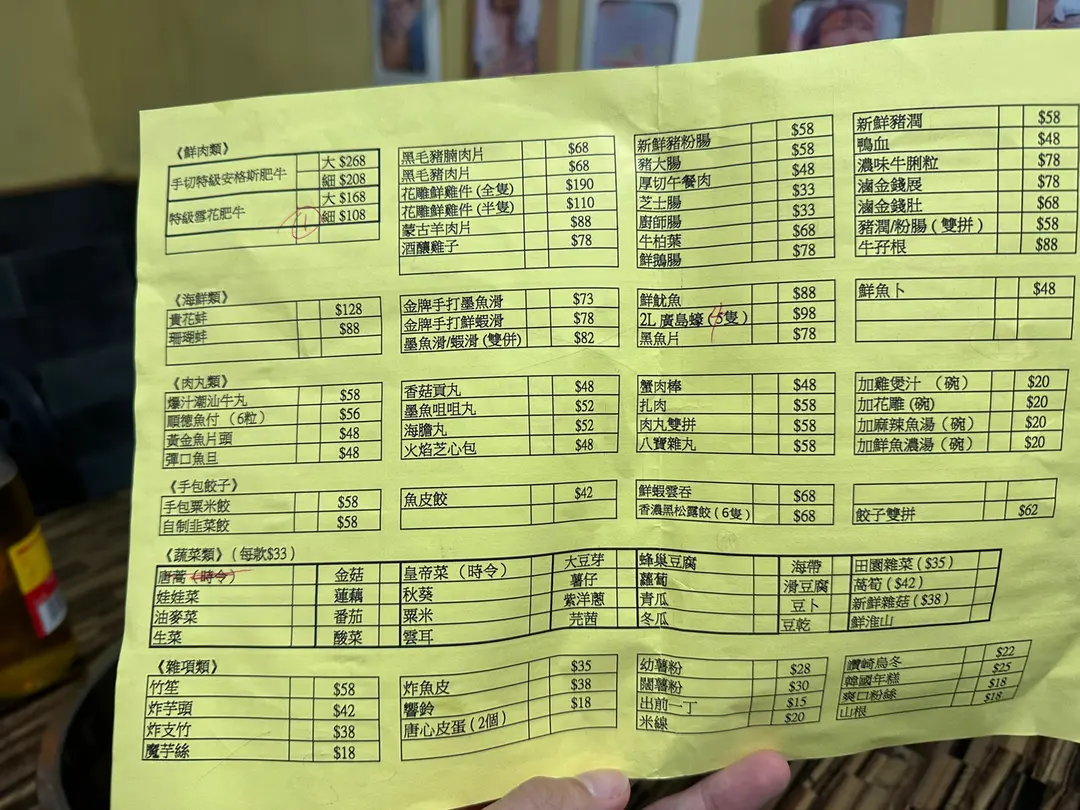 《鮮肉類》
手切特級安格斯肥牛 大 $268
細 $208
特級雪花肥牛 大 $168
細 $108
黑毛豬腩肉片 $68
黑毛豬肉片 $68
花雕鮮雞件 (全隻) $190
花雕鮮雞件 (半隻) $110
蒙古羊肉片 $88
酒釀雞子 $78
新鮮豬粉腸 $58
豬大腸 $58
厚切午餐肉 $48
芝士腸 $33
廚師腸 $33
牛柏葉 $68
鮮鵝腸 $78
新鮮豬潤 $58
鴨血 $48
濃味牛脷粒 $78
滷金錢展 $78
滷金錢肚 $68
豬潤/粉腸 (雙拼) $58
牛孖根 $88
《海鮮類》
貴花蚌 $128
珊瑚蚌 $88
金牌手打墨魚滑 $73
金牌手打鮮蝦滑 $78
墨魚滑/蝦滑 (雙併) $82
鮮魷魚 $88
2L 廣島蠔 (4隻) $98
黑魚片 $78
鮮魚卜 $48
《肉丸類》
爆汁潮汕牛丸 $58
順德魚付 (6粒) $56
黃金魚片頭 $48
彈口魚旦 $48
香菇貢丸 $48
墨魚咀咀丸 $52
海膽丸 $52
火焰芝心包 $48
蟹肉棒 $48
扎肉 $58
肉丸雙拼 $58
八寶雜丸 $58
加雞煲汁 (碗) $20
加花雕 (碗) $20
加麻辣魚湯 (碗) $20
加鮮魚濃湯 (碗) $20
《手包餃子》
手包粟米餃 $58
自制韭菜餃 $58
魚皮餃 $42
鮮蝦雲吞 $68
香濃黑松露餃 (6隻) $68
餃子雙拼 $62
《蔬菜類》 (每款$33)
唐蒿 (時令) 金菇 皇帝菜 (時令) 大豆芽 蜂巢豆腐 海帶 田園雜菜 ($35)
娃娃菜 蓮藕 秋葵 薯仔 蘿蔔 滑豆腐 萵筍 ($42)
油麥菜 番茄 粟米 紫洋蔥 青瓜 豆卜 新鮮雜菇 ($38)
生菜 酸菜 雲耳 芫茜 冬瓜 豆乾 鮮淮山
《雜項類》
竹笙 $58
炸芋頭 $42
炸支竹 $38
魔芋絲 $18
炸魚皮 $35
響鈴 $38
唐心皮蛋 (2個) $18
幼薯粉 $28
闊薯粉 $30
出前一丁 $15
米線 $20
讚崎烏冬 $22
韓國年糕 $25
爽口粉絲 $18
山根 $18